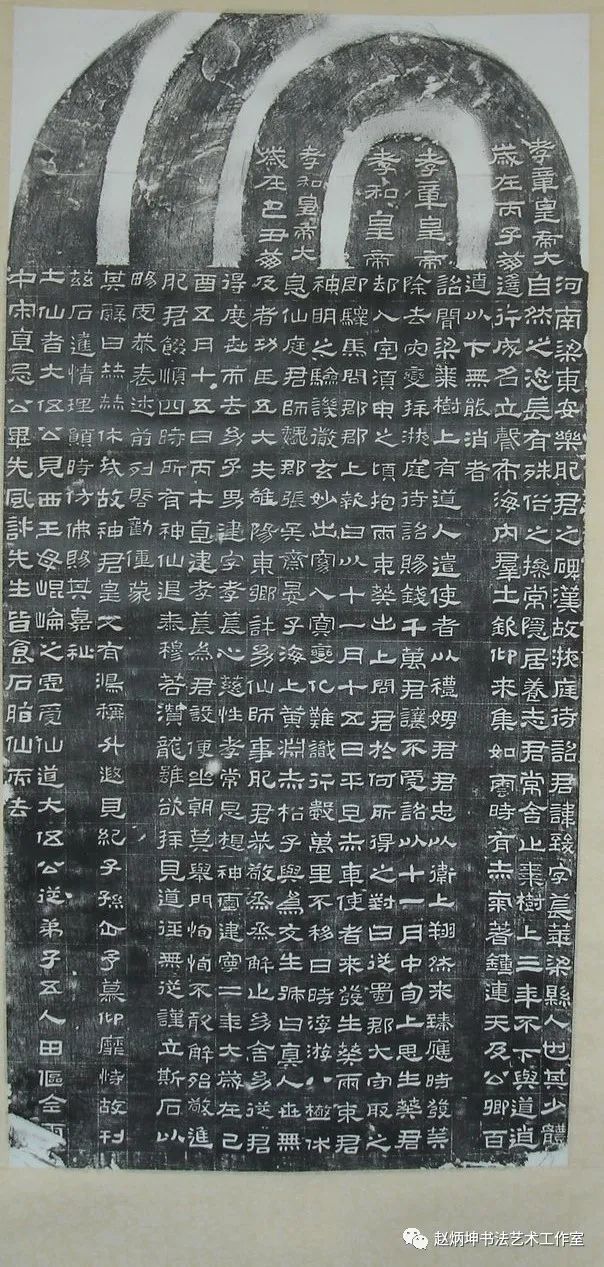 孝章皇帝
孝和皇帝
孝章皇帝大
歲在丙子崩
孝和皇帝大
歲在己丑崩
河南梁東安樂肥君之碑漢故掖庭待詔君諱致字萇華梁縣人也其少體
自然之恣長有殊俗之操常隱居養志君常舍止棗樹上三年不下與道逍
遙行成名立聲布海內羣士欽仰來集如雲時有赤氣著鍾連天及公卿百
遼以下無能消者
詔聞梁棗樹上有道人遣使者以禮娉君君忠以衛上翔然來臻應時發筭
除去灾變拜掖庭待詔賜錢千萬君讓不受詔以十一月中旬上思生葵君
却入室須臾之頃抱兩束葵出上問君於何所得之對曰從蜀郡大守取之
即驛馬問郡郡上報曰以十一月十五日平旦赤車使者來發生葵兩束君
神明之驗譏徹玄妙出窈入冥變化難識行數萬里不移日時浮游八極休
息仙庭君師魏郡張吳齋晏子海上黃淵赤松子與為友生號曰真人世無
及者功臣五大夫雒陽東鄉許幼仙師事肥君恭敬烝烝解止幼舍幼從君
得度世而去幼子男建字孝萇心慈性孝常思想神靈建寧二年大歲在己
酉五月十五日丙午直建孝萇為君設便坐朝莫舉門恂恂不敢解殆敬進
肥君餟順四時所有神仙退泰穆若潛龍雖欲拜見道徑無從謹立斯石以
暢虔恭表述前列啓勸僮蒙
其辭曰赫赫休哉故神君皇又有鴻稱升遐見紀子孫企予慕仰靡恃故刊
茲石達情理願時仿佛賜其嘉祉
土仙者大伍公見西王母崐崘之虛受仙道大伍公從弟子五人田傴全雨
中宋直忌公畢先風許先生皆食石脂仙而去
赵炳坤书法艺术工作室